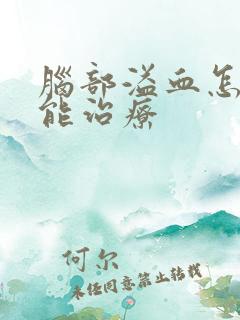 腦部溢血怎
能治療
何尔
未经同意禁止转载